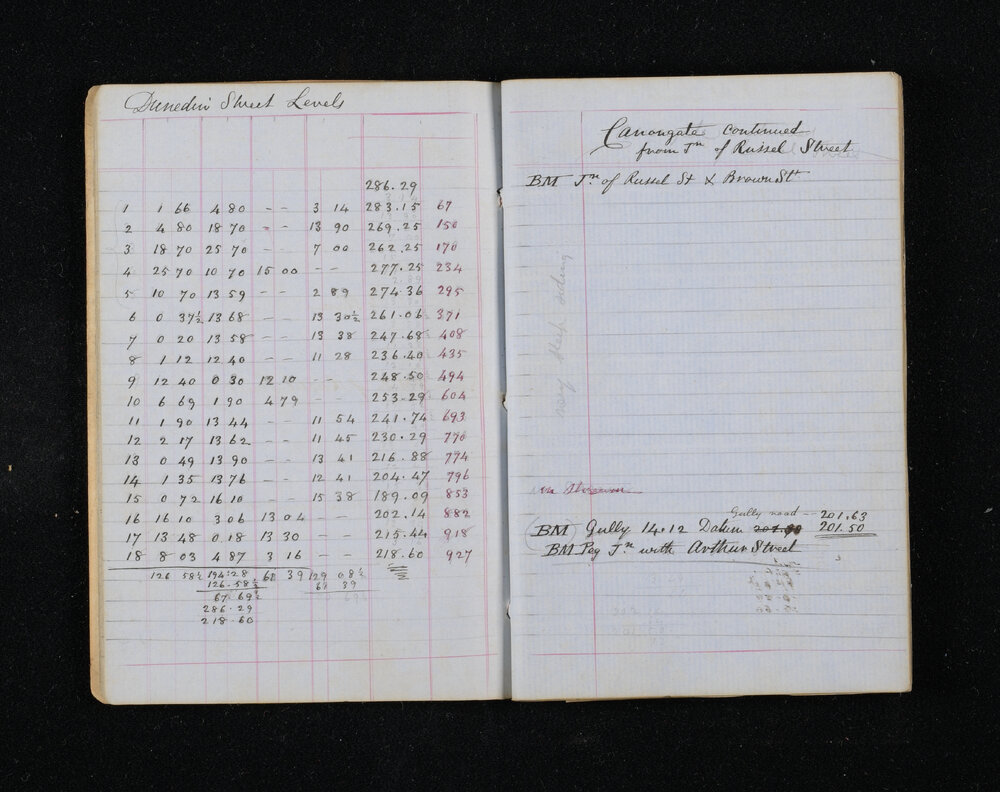 Dunedin Street Levels
286.29
1 1 66 4 80 - - 3 14 283.15 67
2 4 80 18 70 - - 13 90 269.25 150
3 18 70 25 70 - - 7 00 262.25 170
4 25 70 10 70 15 00 - - 277.25 234
5 10 70 13 59 - - 2 89 274 36 295
6 0 37½ 13 68 - - 13 30½ 261.06 371
7 0 20 13 58 - - 13 38 247.68 408
8 1 12 12 40 - - 11 28 236.40 435
9 12 40 0 30 12 10 - - 248.50 494
10 6 69 1 90 4 79 - - 253.29 604
11 1 90 13 44 - - 11 54 241.74 693
12 2 17 13 62 - - 11 45 230.29 770
13 0 49 13 90 - - 13 41 216.88 774
14 1 35 13 76 - - 12 41 204.47 796
15 0 72 16 10 - - 15 38 189.09 853
16 16 10 3 06 13 04 - - 202.14 882
17 13 48 0 18 13 30 - - 215.44 918
18 8 03 4 87 3 16 - - 218.60 927
126 58½ 194.28 61 39 129 08½
126.58½ 61 39
67 69½
286.29
218.60
Canongate continued
from Jn of Russel Street
BM Jn of Russel St & Brown St
very steep siding
Gully road -- 201.63
BM Gully 14.12 Datum 201.50
BM Peg Jn with Arthur Street